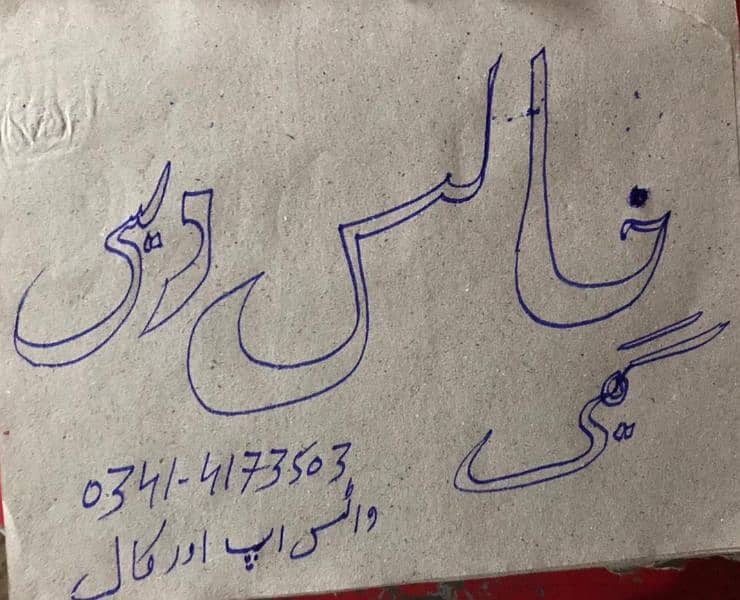 خالس دیسی
گھی
0341-4173503
واٹس اپ اور کال